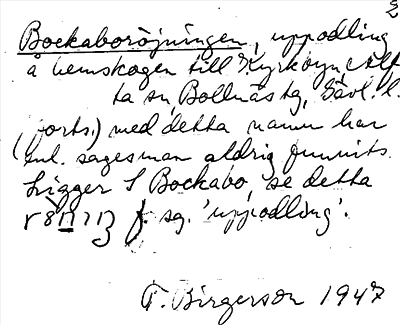 2
Bockaboröjningen, uppodling
å hemskogen till Kyrkbyn Alf
ta sn Bollnäs tg, Gävl. l.
(forts.) med detta namn har
enl. sagesman aldrig funnits.
Ligger S Bockabo, se detta
f. sg. 'uppodling'.
T. Birgerson 1947